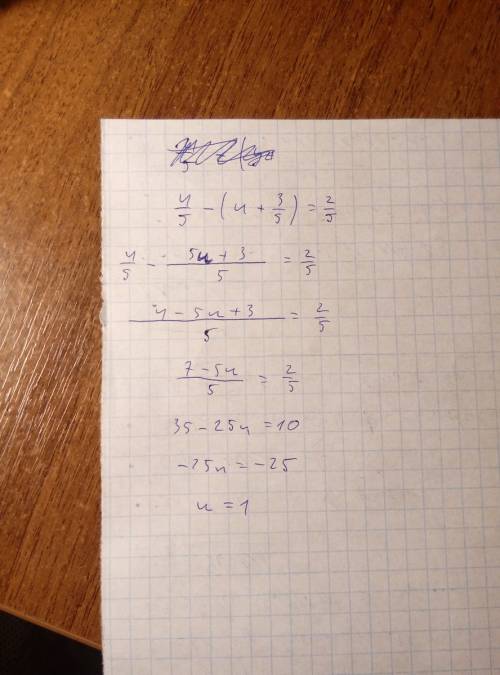 4/5 - (u + 3/5) = 2/5
4/5 - 5u + 3/5 = 2/5
4 - 5u + 3/5 = 2/5
7 - 5u/5 = 2/5
35 - 25u = 10
-25u = -25
u = 1